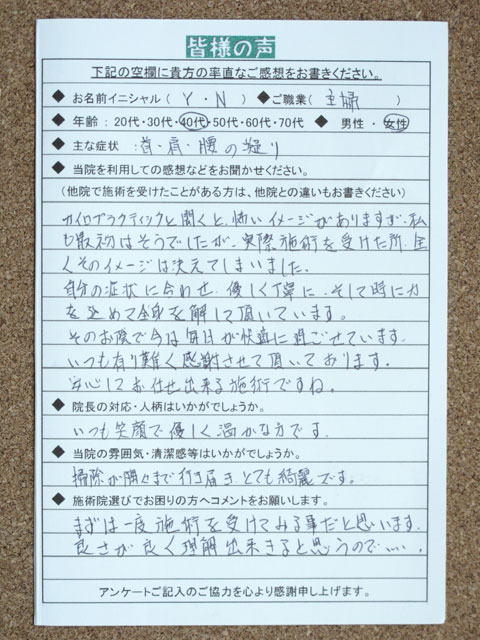 皆様の声
下記の空欄に貴方の率直なご感想をお書きください。
◆ お名前イニシャル（ Y・N ）◆ご職業（ 主婦 ）
◆ 年齢：20代・30代・40代・50代・60代・70代 ◆ 男性・女性
◆ 主な症状 ：首・肩・腰の凝り
◆ 当院を利用しての感想などをお聞かせください。
（他院で施術を受けたことがある方は、他院との違いもお書きください）
カイロプラクティックと聞くと、怖いイメージがありますが、私
も最初はそうでしたが、実際施術を受けた所、全
くそのイメージは消えてしまいました。
自分の症状に合わせ、優しく丁寧に、そして時に力
を込めて全身を解して頂いています。
そのお陰で今は毎日が快適に過ごせています。
いつも有り難く感謝させて頂いております。
安心してお任せ出来る施術ですね。
◆ 院長の対応・人柄はいかがでしょうか。
いつも笑顔で優しく温かな方です。
◆ 当院の雰囲気・清潔感等はいかがでしょうか。
掃除が隅々まで行き届きとても綺麗です。
◆ 施術院選びでお困りの方へコメントをお願いします。
まずは一度施術を受けてみる事だと思います。
良さが良く理解出来きると思うので…。
アンケートご記入のご協力を心より感謝申し上げます。